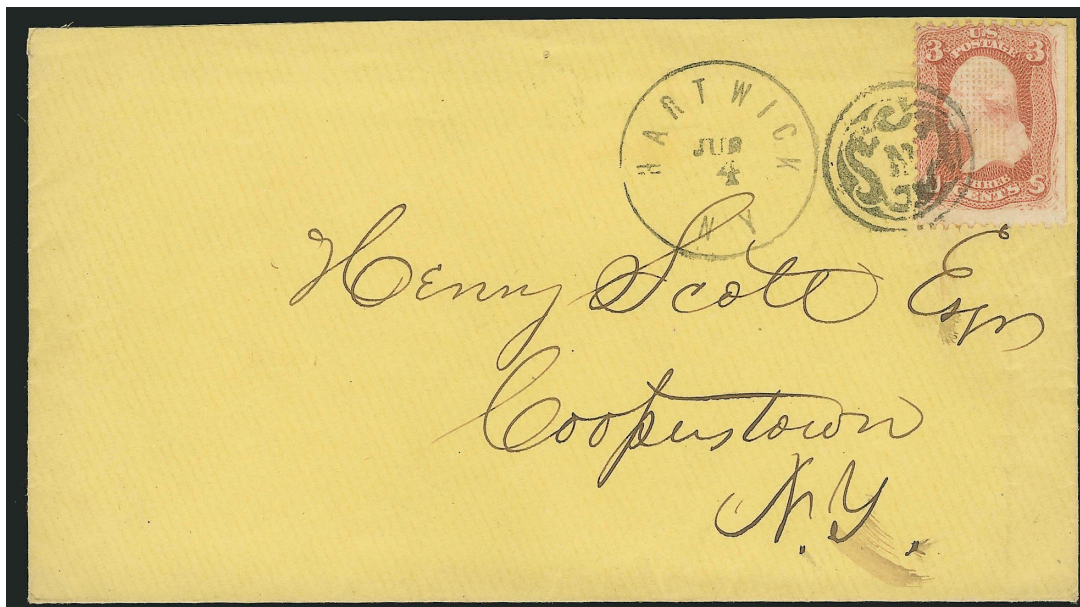 HARTWICK
JUN
4
N Y
N
3 U.S. 3
POSTAGE
THREE
CENTS
Henry Scott Esqr
Cooperstown
N.Y.